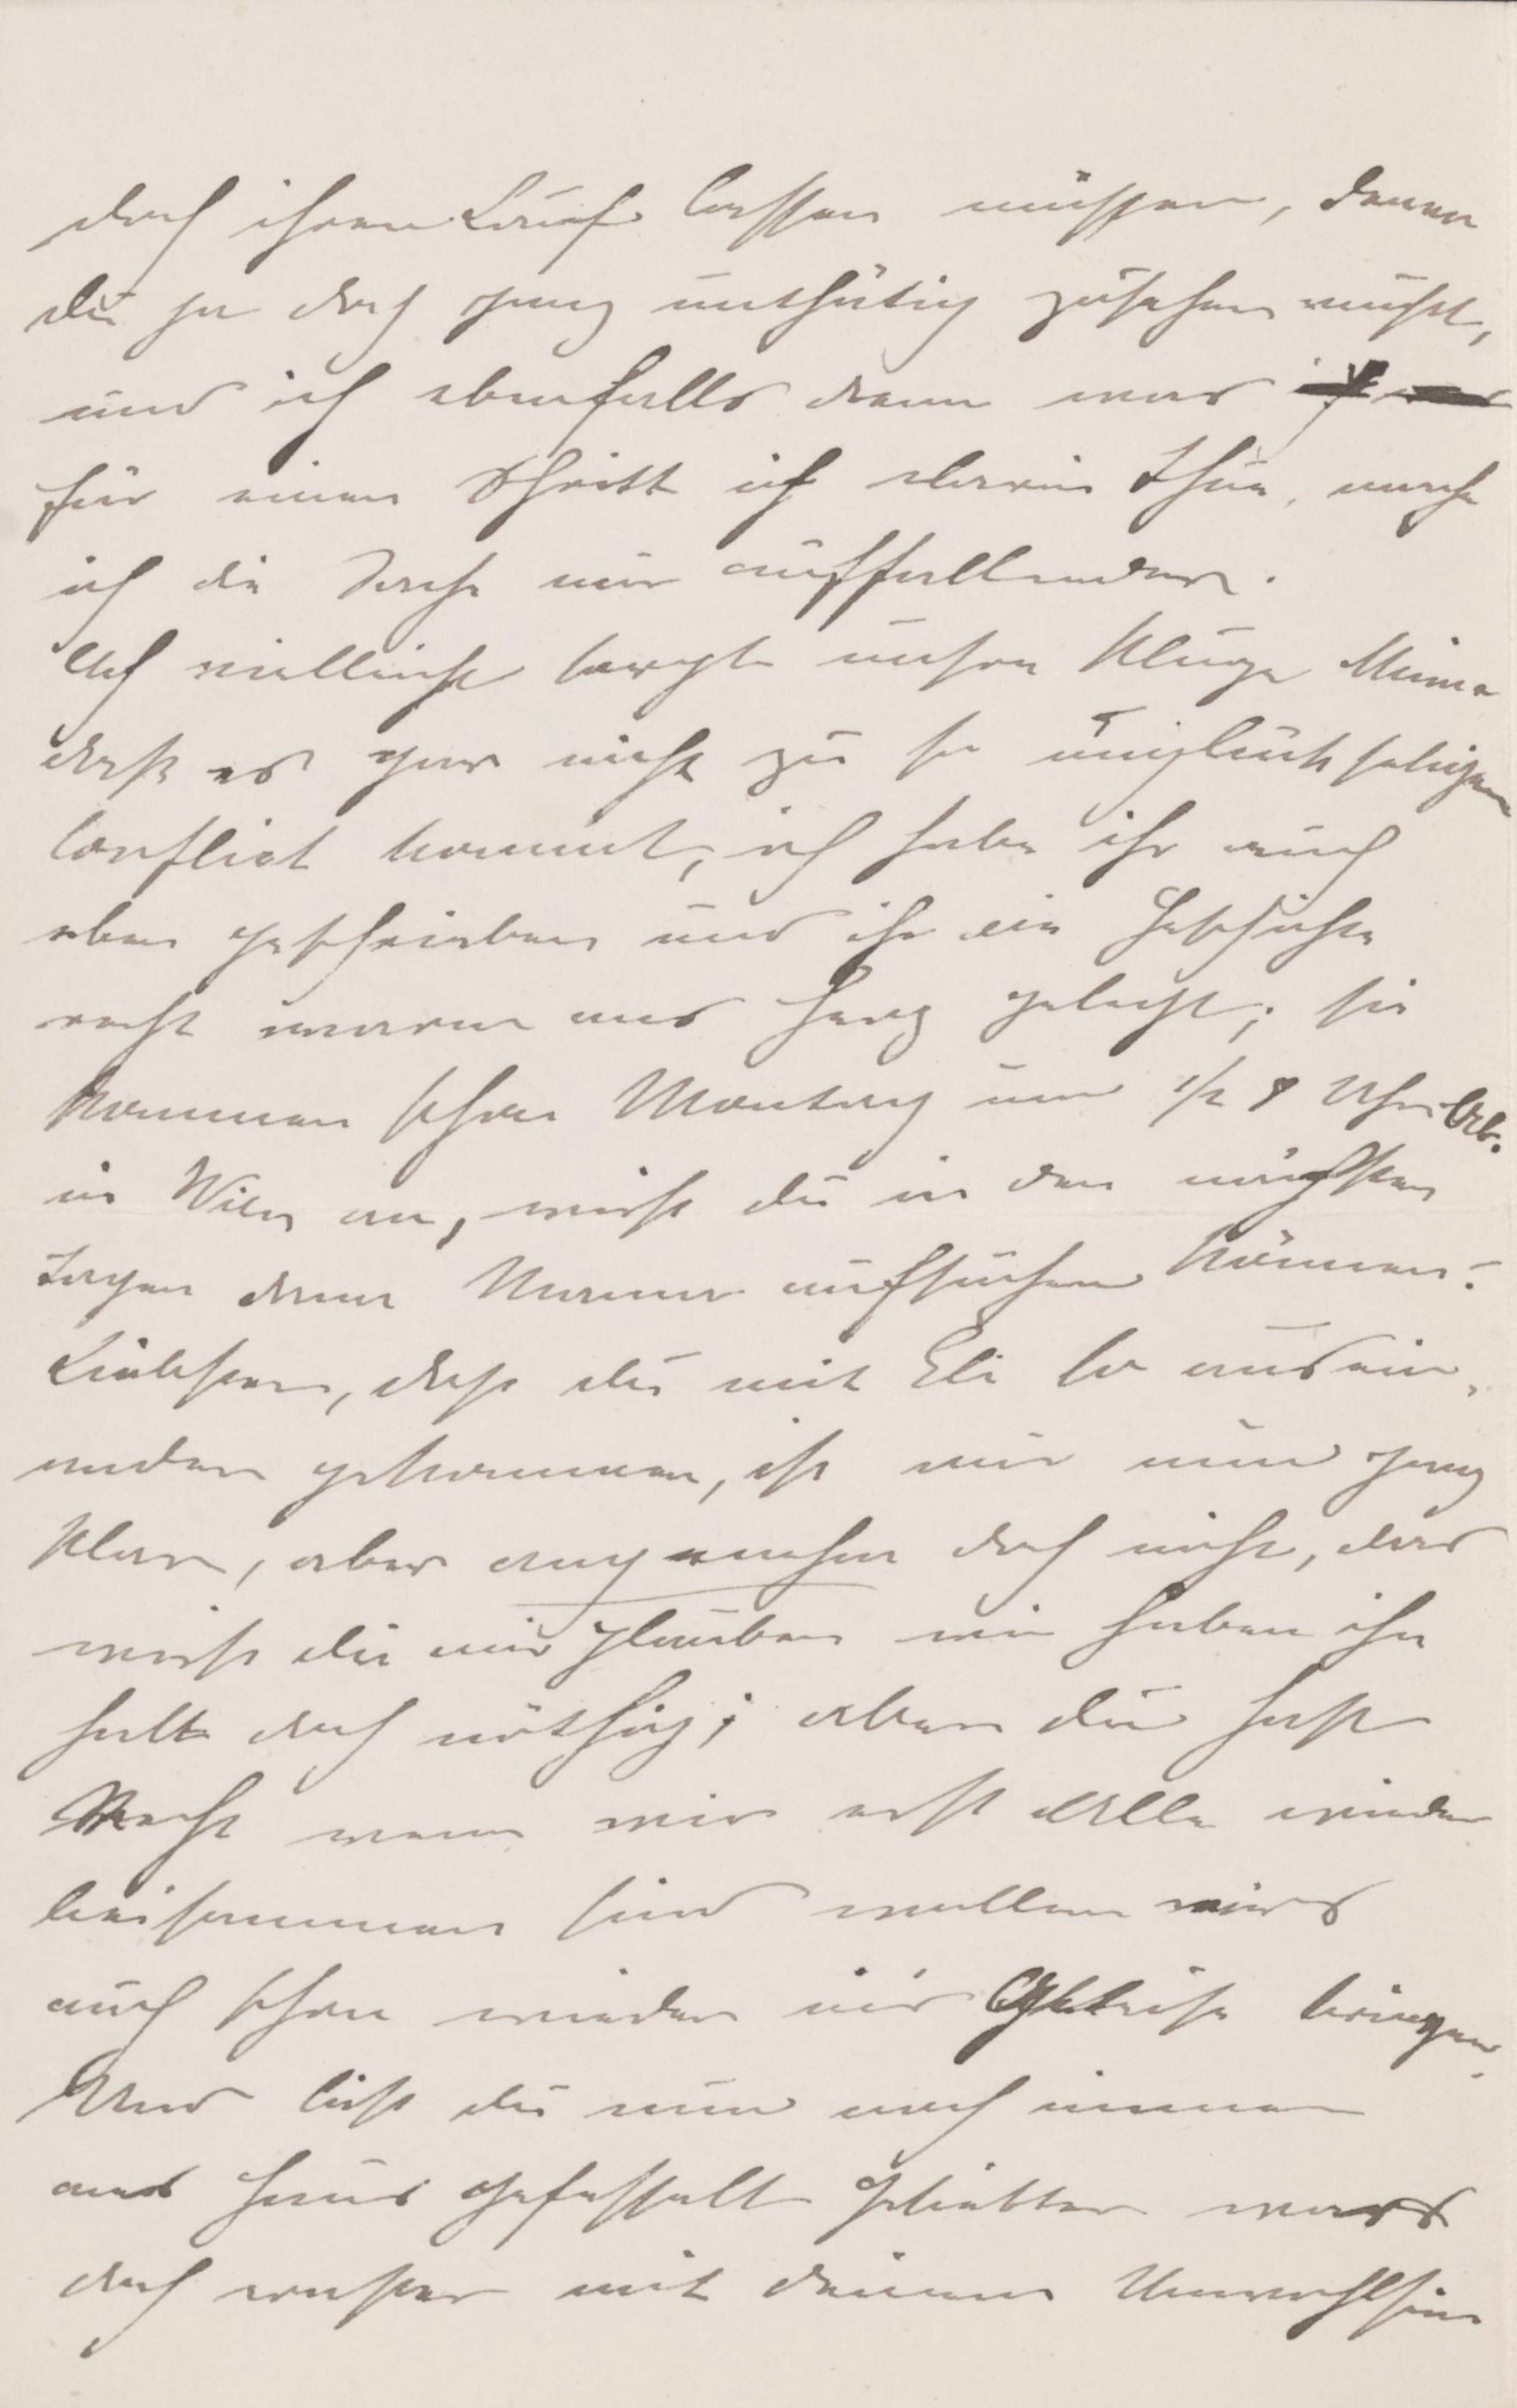 doch ihren Lauf lassen müssen, denen
du ja doch ganz unthätig zusehen mußt,
und ich ebenfalls denn was
für einen Schritt ich darin thue, mache
ich die Sache nur auffallender.
Ach vielleicht sorgt unsere kluge Minna
daß es gar nicht zu so unglückseligem
Conflict kommt, ich habe ihr auch
eben geschrieben und ihr die Geschichte
recht warm ans Herz gelegt; sie
kommen schon Montag um 1/2 8 Uhr Ab.
in Wien an, wirst du in den nächsten
Tagen denn Mama aufsuchen können?
Liebster, daß du mit Eli so ausein-
ander gekommen, ist mir nun ganz
klar, aber angenehm doch nicht, das
wirst du mir glauben wir haben ihn
halt doch nöthig; aber du hast
Recht wenn wir erst Alle wieder
beisammen sind wollen wirs
auch schon wieder ins Geleise bringen.
Und bist du nun noch immer
ans Haus gefesselt Geliebter wars
doch ernster mit deinem Unwohlsein